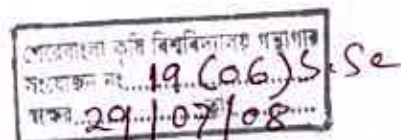 শেরেবাংলা কৃষি বিশ্ববিদ্যালয় গন্থাগার
সংযোজন নং 19 (06) S.Sc
স্বাক্ষর 29/07/08